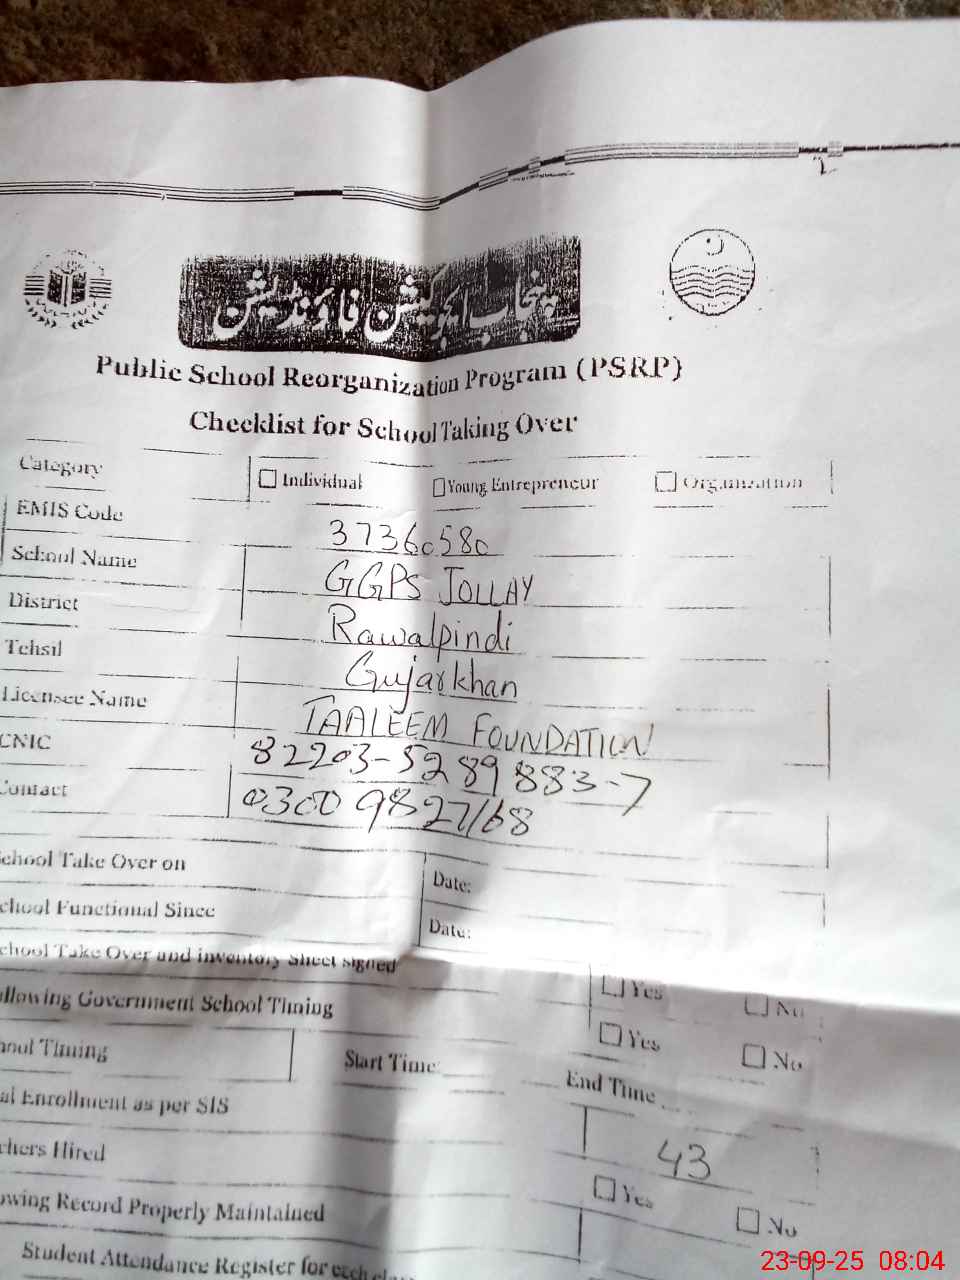 پنجاب ایجوکیشن فاؤنڈیشن
Public School Reorganization Program (PSRP)
Checklist for School Taking Over
Category Individual Young Entrepreneur Organization
EMIS Code 37360580
School Name GGPS JOLLAY
District Rawalpindi
Tehsil Gujarkhan
Licensee Name TAALEEM FOUNDATION
CNIC 82203-5289883-7
Contact 0300 9827168
chool Take Over on Date:
chool Functional Since Date:
chool Take Over and inventory Sheet signed Yes No
ollowing Government School Timing Yes No
hool Timing Start Time: End Time
al Enrollment as per SIS 43
chers Hired Yes No
owing Record Properly Maintained
Student Attendance Register for each
23-09-25 08:04